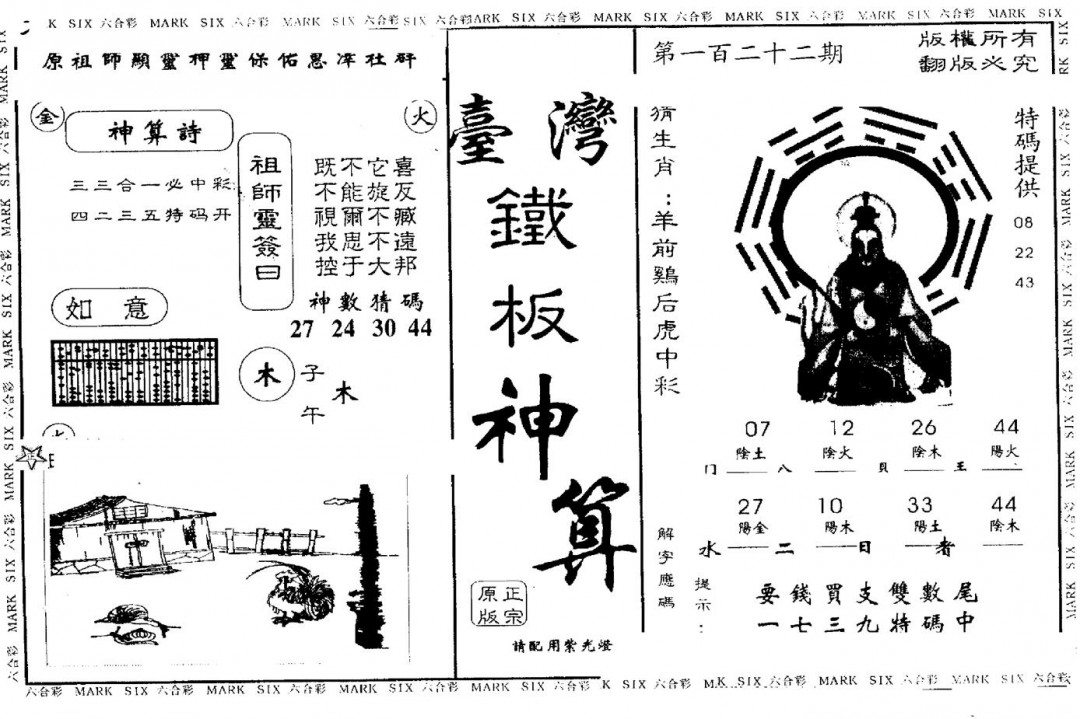 K SIX 六合彩 MARK SIX 六合彩 MARK SIX 六合彩 SIX 六合彩 ARK SIX 六合彩 MARK SIX 六合彩 MARK SIX 六合彩 MARK SIX 六合彩 MARK SIX
原祖師顯靈押靈保佑恩澤社群
金
火
神算詩
三三合一必中彩
四二三五特码开
祖師靈簽曰
既不它喜
不能旋反
視爾不臧
我思不遠
控于大邦
神數猜碼
27 24 30 44
如意
木
子
午
木
臺灣
鐵
板
神
算
正宗
原版
請配用紫光燈
第一百二十二期
版權所有
翻版必究
猜生肖：羊前鷄后虎中彩
特碼提供
08
22
43
07 12 26 44
陰土 陰火 陰木 陽火
门 八 貝 王
27 10 33 44
陽金 陽木 陽土 陰木
水 二 日 者
解字應碼
提示：
要錢買支雙數尾
一七三九特碼中
六合彩 MARK SIX 六合彩 MARK SIX 六合彩 MARK SIX 六合彩 MARK SIX 六合彩 K SIX 六合彩 SIX 六合彩 MARK SIX 六合彩 MARK SIX 六合彩